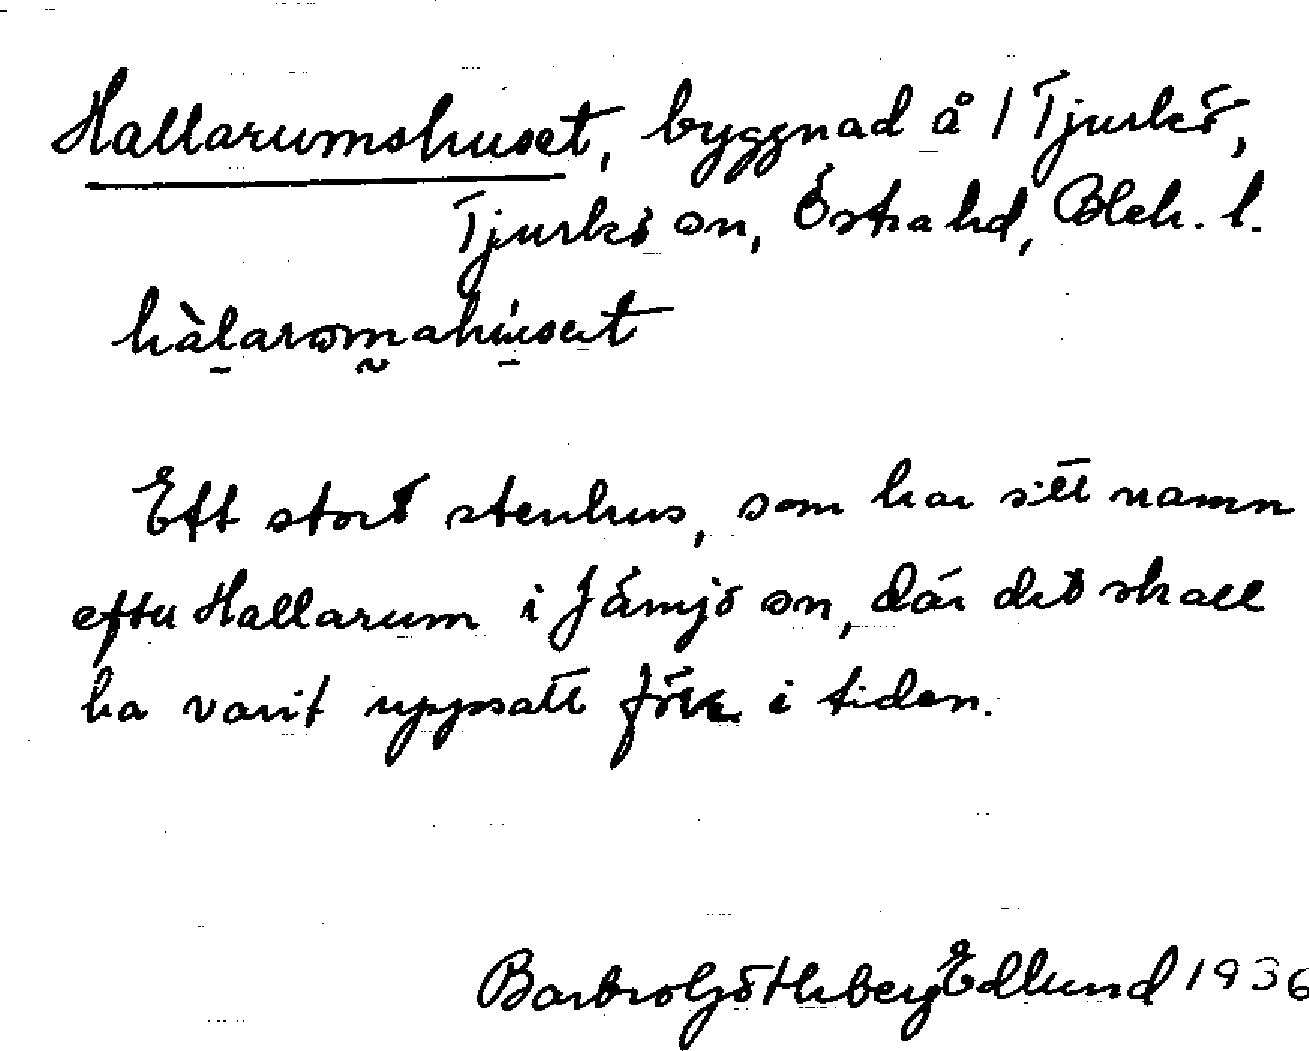 Hallarumshuset, byggnad å 1 Tjurkö,
Tjurkö sn, Östra hd, Blek. l.
hàlaromahúset
Ett stort stenhus, som har sitt namn
efter Hallarum i Jämjö sn, där det skall
ha varit uppsatt förr i tiden.
Barbro Göthberg Edlund 1936